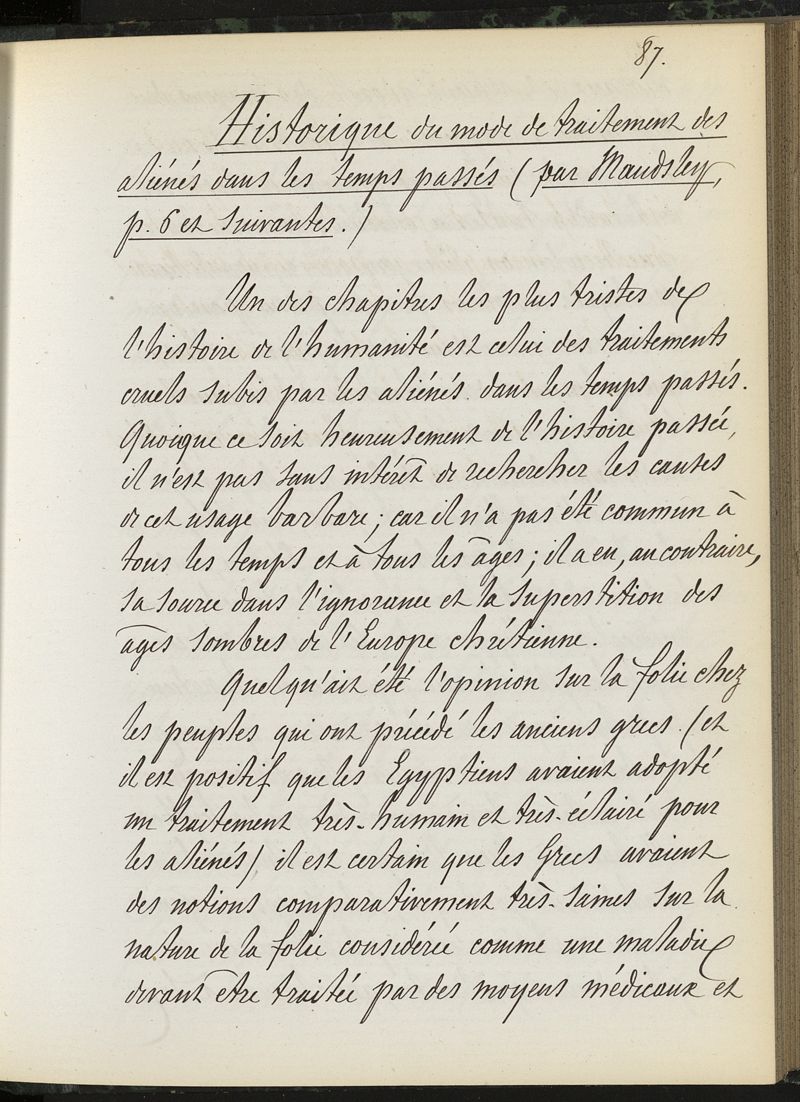 87.
Historique du mode de traitement des
aliénés dans les temps passés (par Maudsley,
p. 6 et suivantes.)
Un des chapitres les plus tristes de
l'histoire de l'humanité est celui des traitements
cruels subis par les aliénés dans les temps passés.
Quoique ce soit heureusement de l'histoire passée,
il n'est pas sans intérêt de rechercher les causes
de cet usage barbare ; car il n'a pas été commun à
tous les temps et à tous les âges ; il a eu, au contraire,
sa source dans l'ignorance et la superstition des
âges sombres de l'Europe chrétienne.
Quel qu'ait été l'opinion sur la folie chez
les peuples qui ont précédé les anciens grecs (et
il est positif que les Egyptiens avaient adopté
un traitement très-humain et très-éclairé pour
les aliénés) il est certain que les Grecs avaient
des notions comparativement très-saines sur la
nature de la folie considérée comme une maladie
devant être traitée par des moyens médicaux et